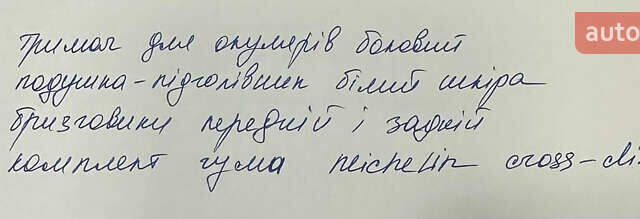 auto
Тримач для окулярів боковий
подушка-підголівник білий шкіра
бризговики передній і задній
комплект гума Michelin cross-cli